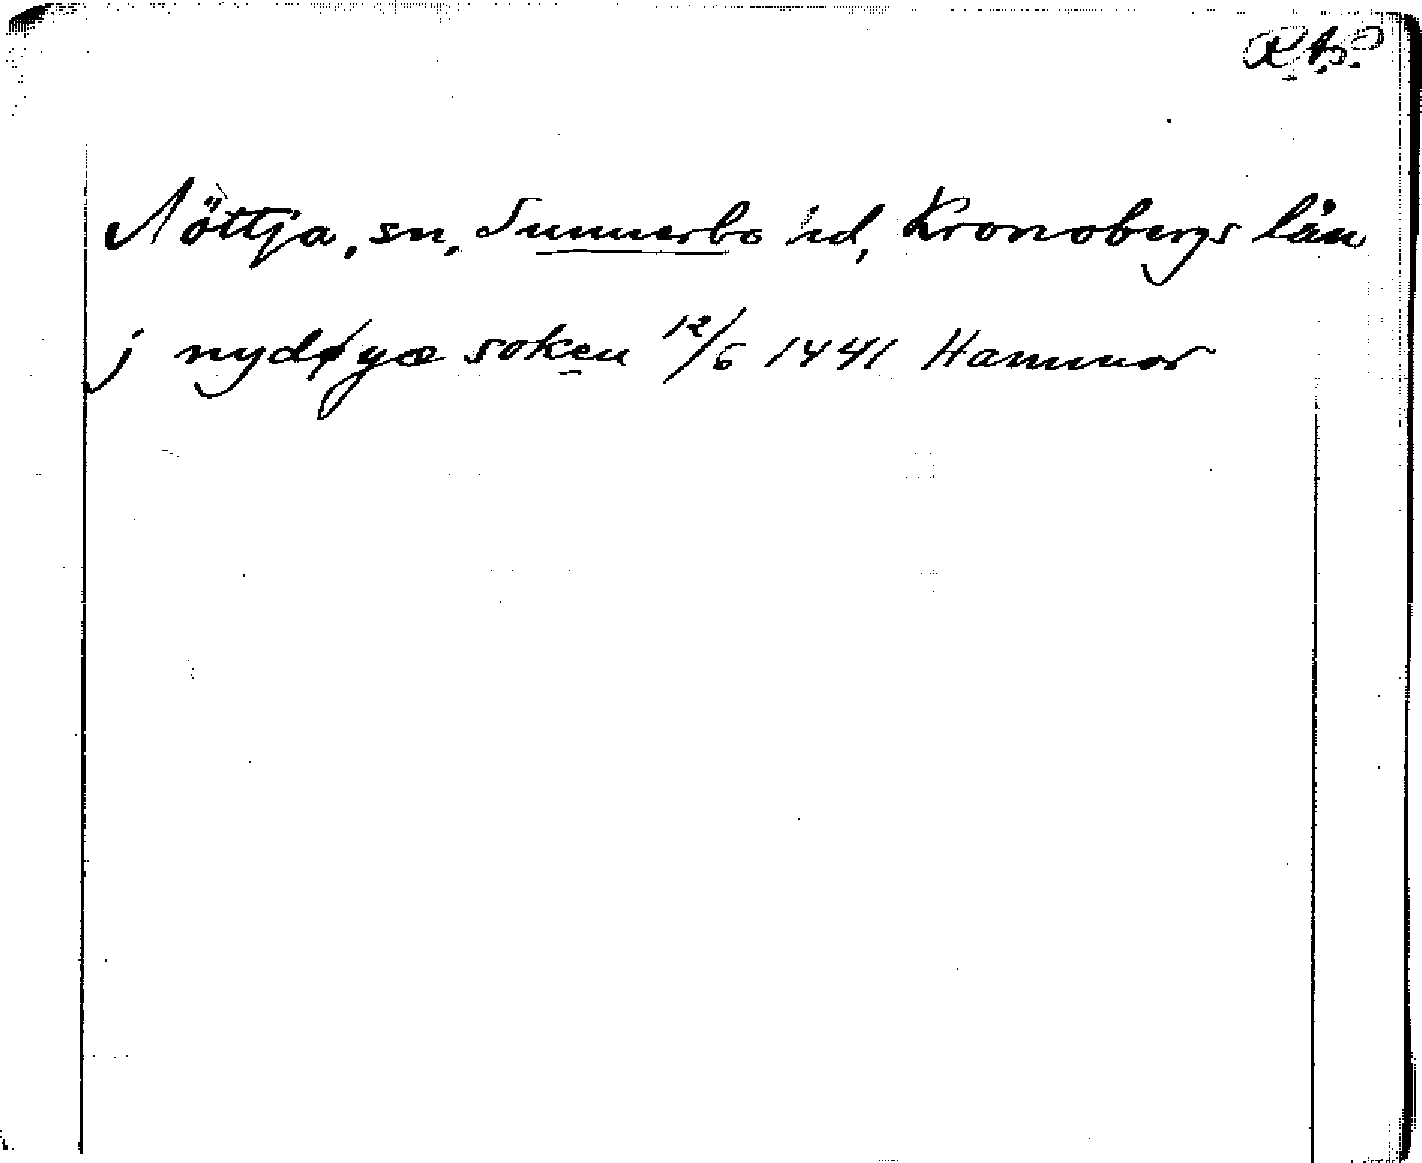 R.A.?
Nöttja, sn, Sunnerbo hd, Kronobergs län
j nydøyæ soken 12/6 1441 Hammar